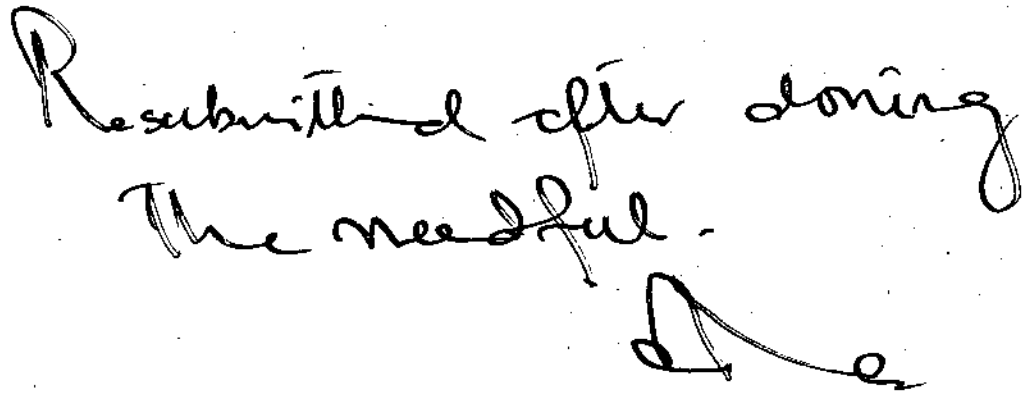 Resubmitted after doning
the needful.